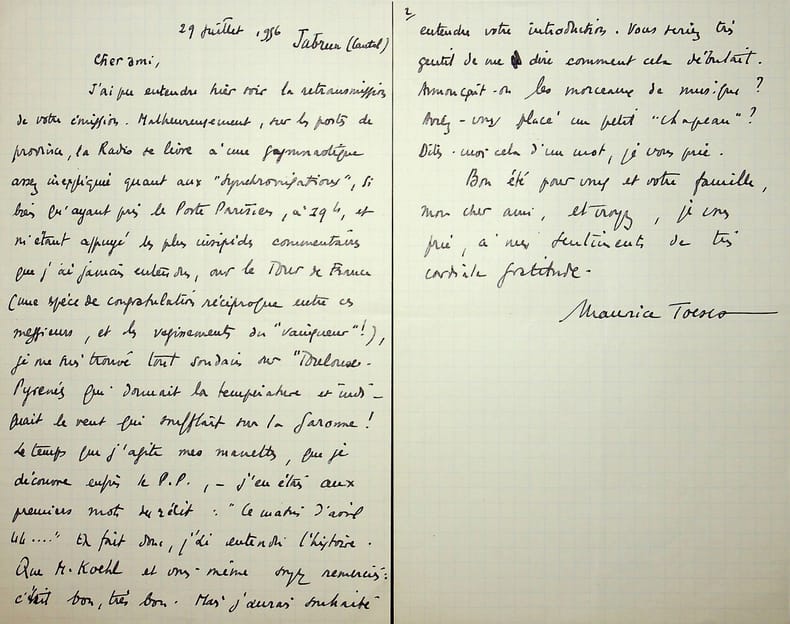 29 juillet 1956 (Cantal)
Cher ami,
J'ai pu entendre hier soir la retransmission
de votre émission. Malheureusement, sur les postes de
province, la Radio se livre à une gymnastique
assez inexpliquée quant aux "synchronisations", si
bien qu'ayant pris le Poste Parisien, à 19h, et
m'étant appuyé les plus insipides commentaires
que j'ai jamais entendus, sur le Tour de France
(une espèce de congratulation réciproque entre ces
messieurs, et les vagissements du "vainqueur"!),
je me suis trouvé tout soudain sur "Toulouse-
Pyrénées qui donnait la température et indi-
quait le vent qui soufflait sur la Garonne!
Le temps que j'agite mes manettes, que je
découvre enfin le P.P., - j'en étais aux
premiers mots du récit : "Ce matin d'avril
44...." En fait donc, j'ai entendu l'histoire.
Que M. Koehl et vous-même soyez remerciés:
c'était bon, très bon. Mais j'aurais souhaité
2
entendre votre introduction. Vous seriez très
gentil de me dire comment cela débutait.
Annonçait-on les morceaux de musique?
Aviez-vous placé un petit "chapeau"?
Dites-moi cela d'un mot, je vous prie.
Bon été pour vous et votre famille,
mon cher ami, et croyez, je vous
prie, à mes sentiments de très
cordiale gratitude.
Maurice Toesca